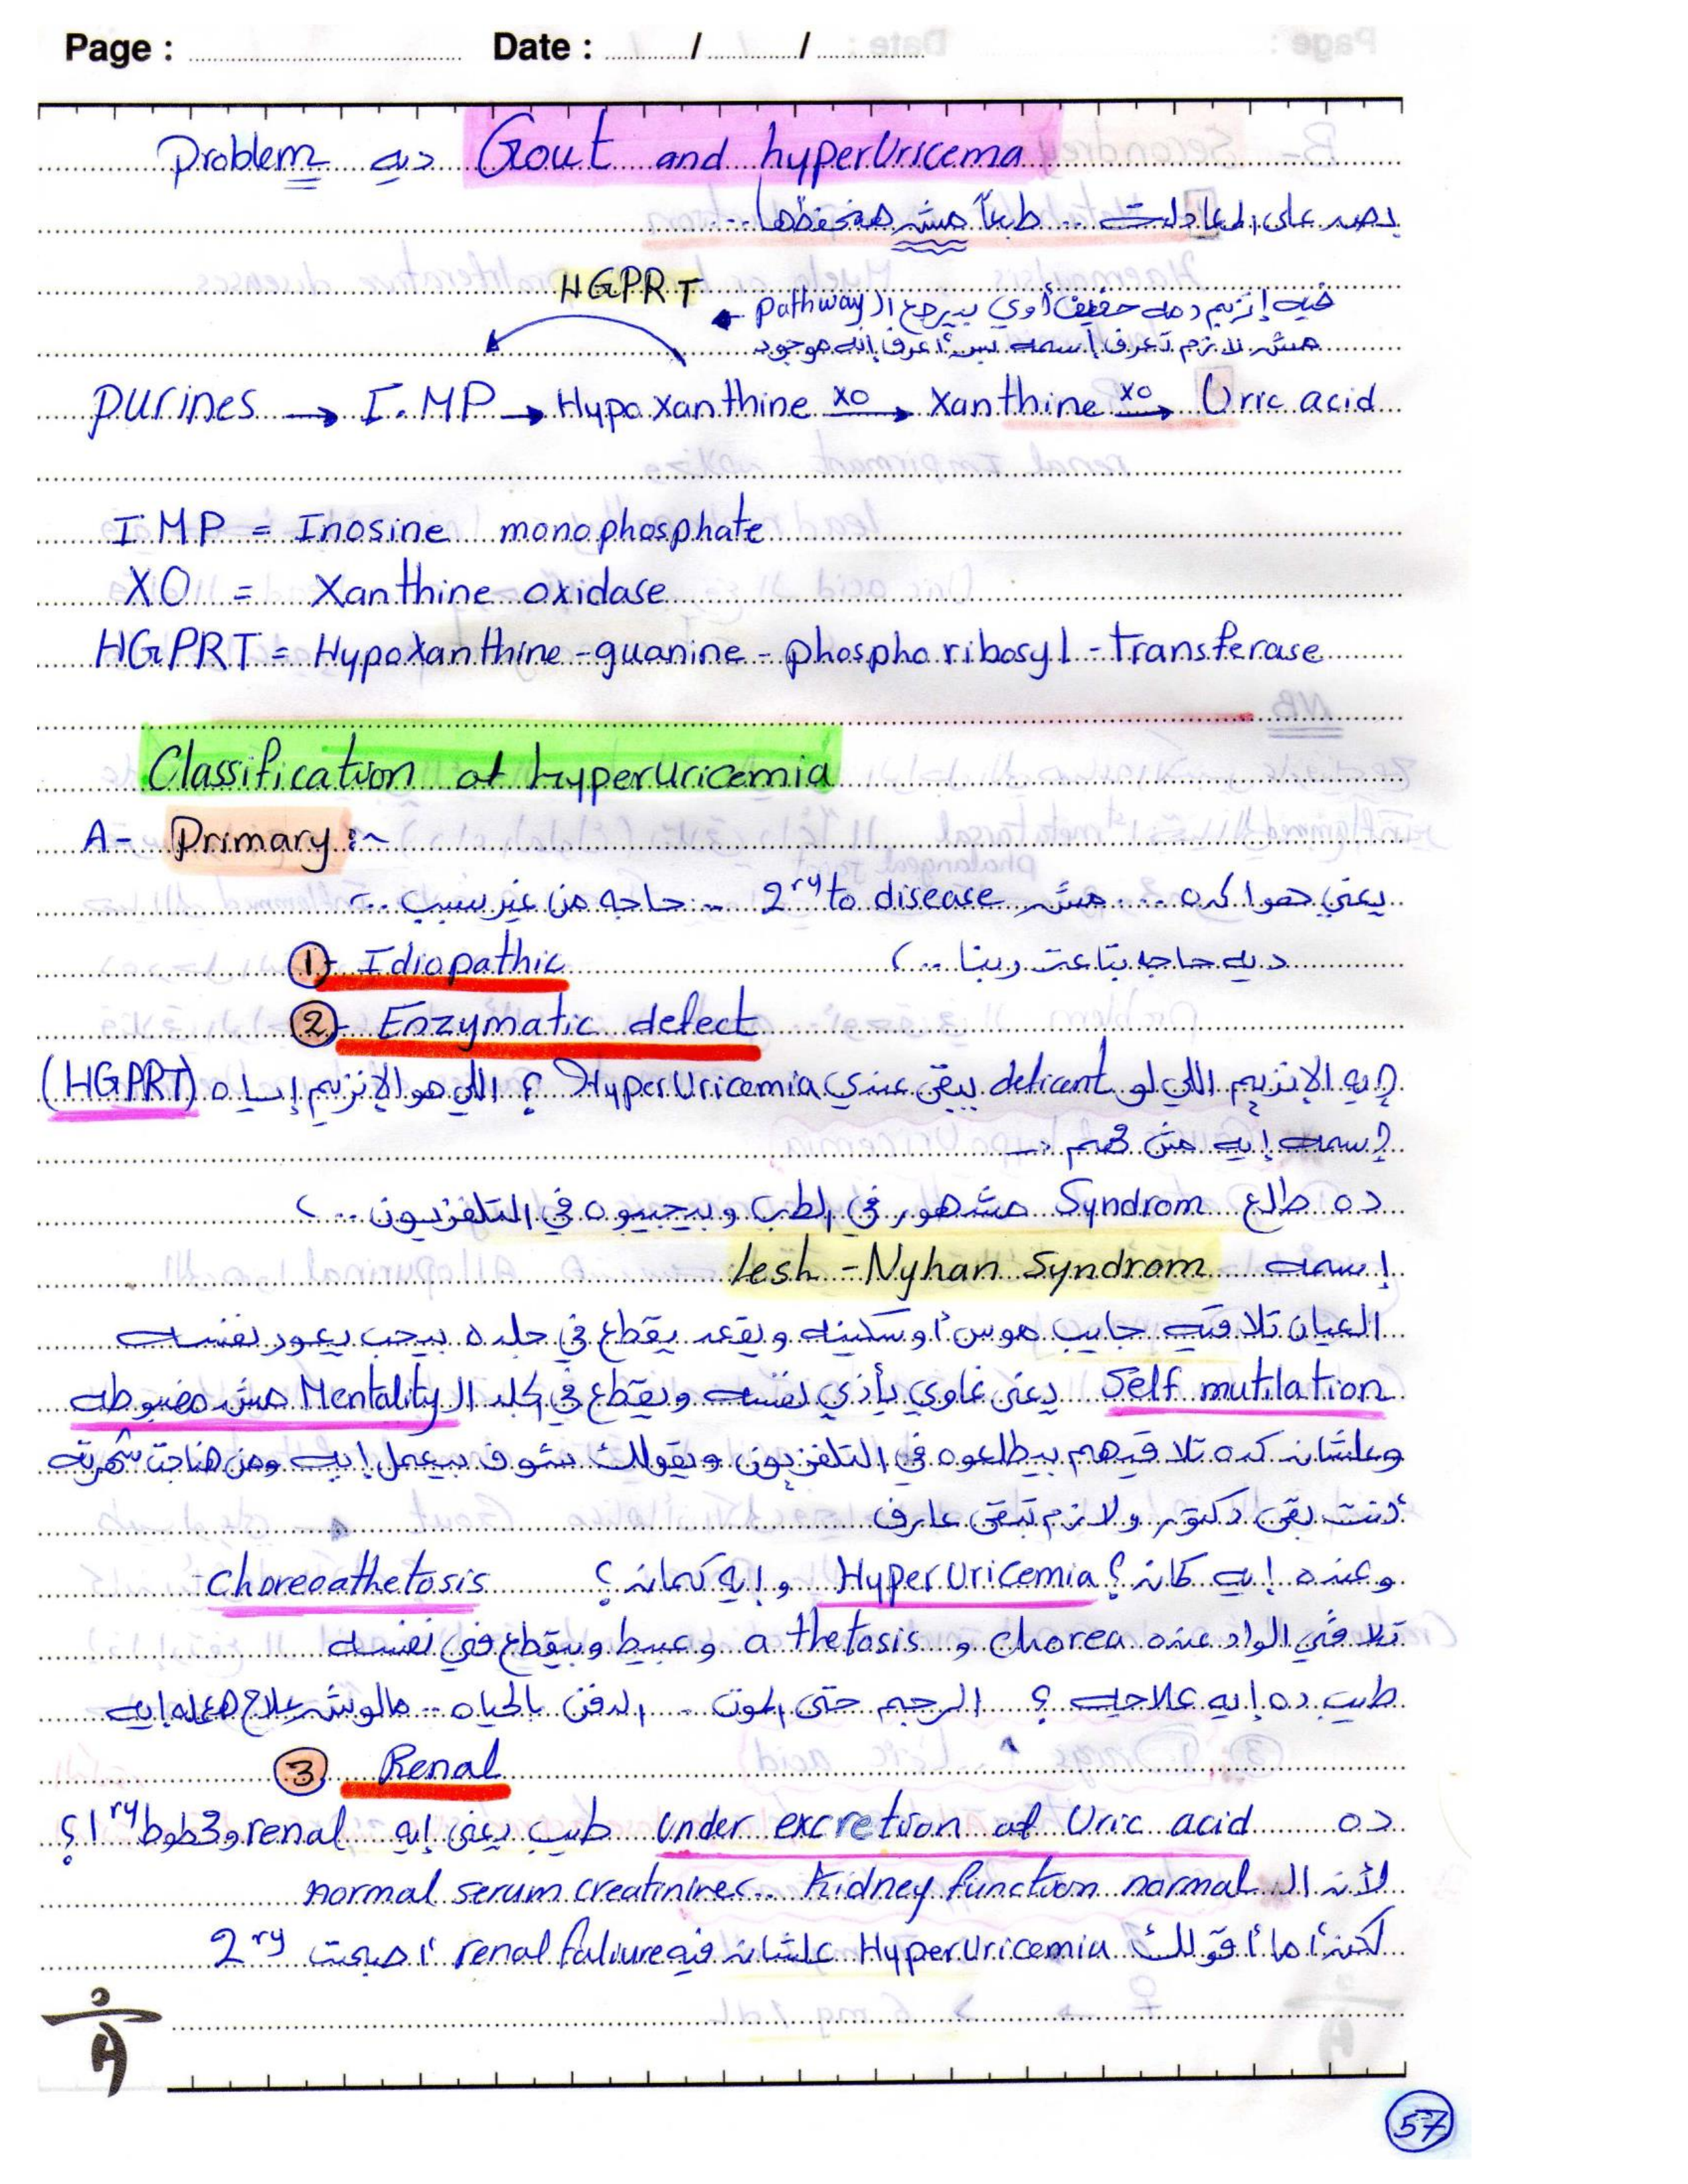 Page : Date : / /
Problem ديه Gout and hyperUricema
بصم على المعادلات ... طبعاً مش هنحفظها ...
HGPRT
فيه إنزيم دمه خفيف أوي بيرجع الـ pathway
مش لازم تعرف أسمه بس أعرف إنه موجود
purines → I.MP → Hypoxanthine XO → Xanthine XO → Uric acid
I.MP = Inosine monophosphate
XO = Xanthine oxidase
HGPRT = Hypoxanthine-guanine-phosphoribosyl-transferase
Classification of hyperuricemia
A- Primary :~
يعني هوا كده ... مش 2ry to disease .. حاجه من غير سبب ..
ديه حاجه بتاعت ربنا ..
1- Idiopathic
2- Enzymatic defect
إيه الإنزيم اللي لو deficent يبقى عندي HyperUricemia ؟ اللي هو الإنزيم إياه (HGPRT)
إسمه إيه مش مهم ..
ده طالع Syndrom مشهور في الطب وبيجيبوه في التلفزيون ..
إسمه lesh-Nyhan Syndrom
العيان تلاقيه جايب موس أو سكينه ويقعد يقطع في جلده بيحب يعور نفسه
Self mutilation يعني غاوي يأذي نفسه ويقطع في جلد الـ Mentality مش مضبوطه
وعلشان كده تلاقيهم بيطلعوه في التلفزيون ويقولك شوف بيعمل إيه ومن هنا جت شهرته
أنت بقى دكتور ولازم تبقى عارف
وعنده إيه كمان ؟ HyperUricemia وإيه كمان ؟ choreoathetosis
تلاقي الواد عنده chorea و athetosis وعبيط وبيقطع في نفسه
طيب ده إيه علاجه ؟ الرجم حتى الموت .. الدفن بالحياه .. مالوش علاج هعمله إيه
3 Renal
ده under excretion of Uric acid طيب يعني إيه renal وحطوط 1ry ؟
لأن الـ Kidney function normal .. normal serum creatinine
لكن أما أقولك HyperUricemia علشان فيه renal faliure أصبحت 2ry
57